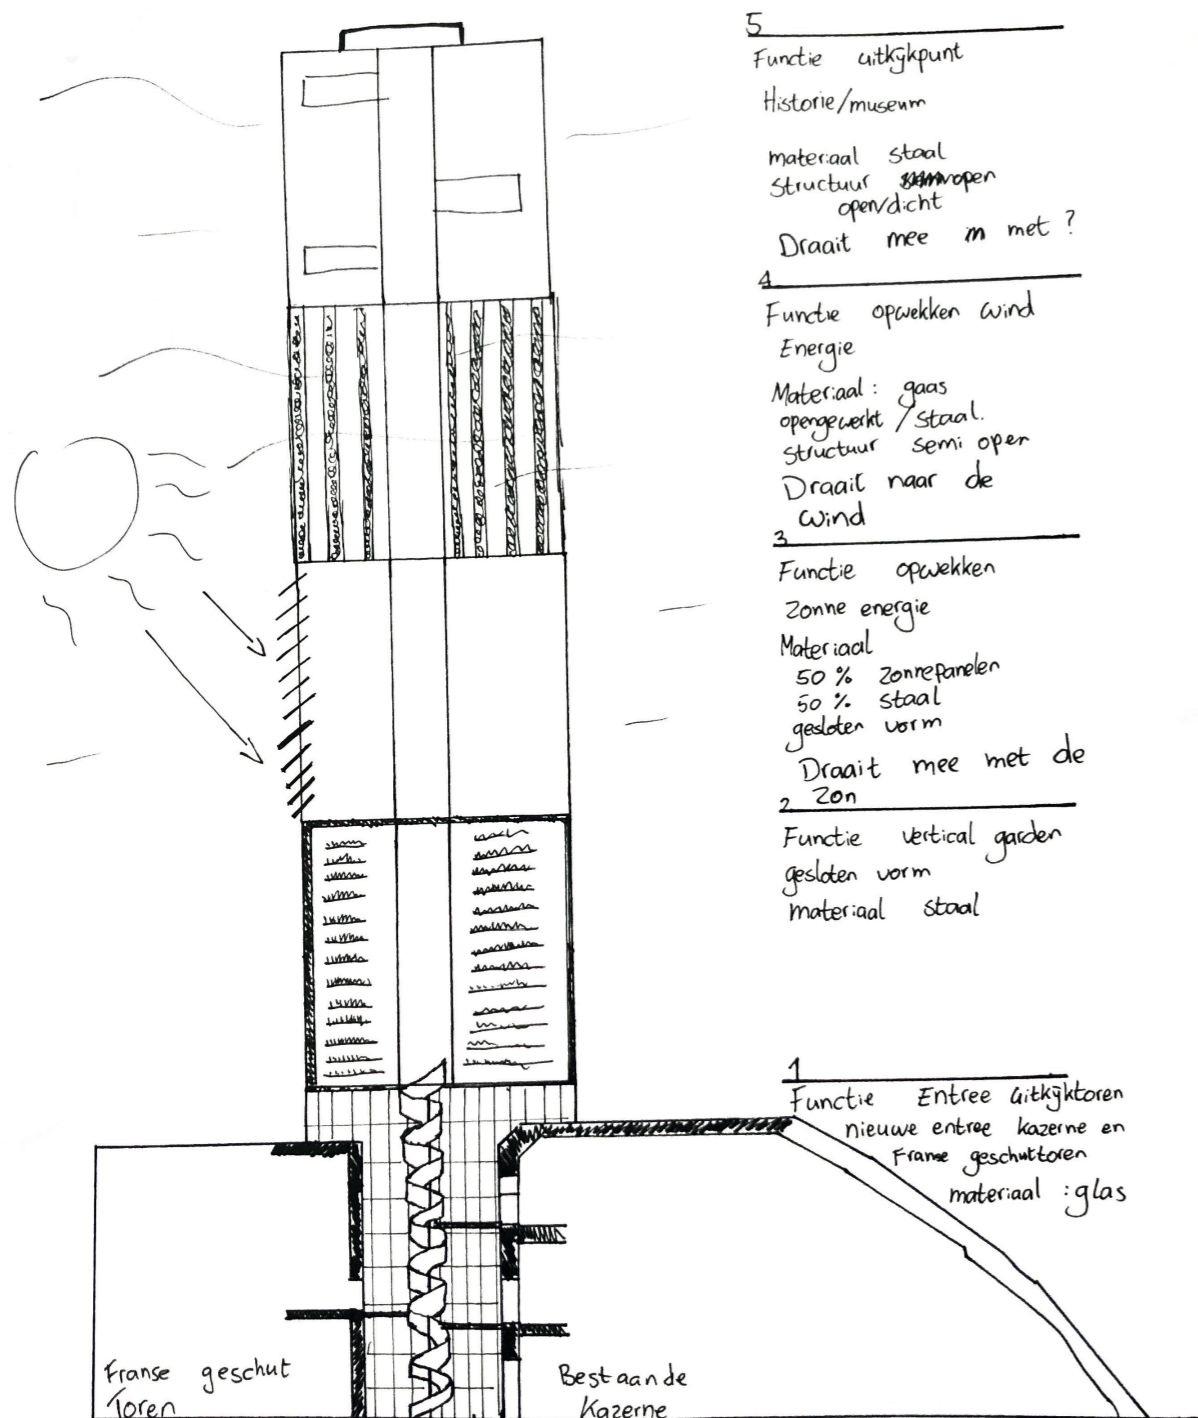 5
Functie uitkijkpunt
Historie/museum
materiaal staal
structuur open
open/dicht
Draait mee met ?
4
Functie opwekken wind
Energie
Materiaal: gaas
opengewerkt / staal.
structuur semi open
Draait naar de
wind
3
Functie opwekken
Zonne energie
Materiaal
50 % zonnepanelen
50 % staal
gesloten vorm
Draait mee met de
Zon
2
Functie vertical garden
gesloten vorm
materiaal staal
1
Functie Entree Uitkijktoren
nieuwe entree kazerne en
Franse geschuttoren
materiaal : glas
Franse geschut
Toren
Bestaande
Kazerne